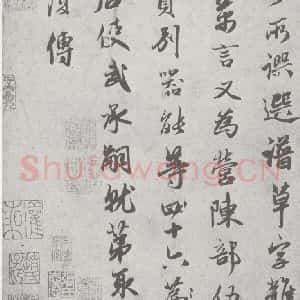 所譔選譜草字雜
萬言又為營陳部伍
負別器能等四十六
后使武承嗣就第取
復傳
Shufawang.CN